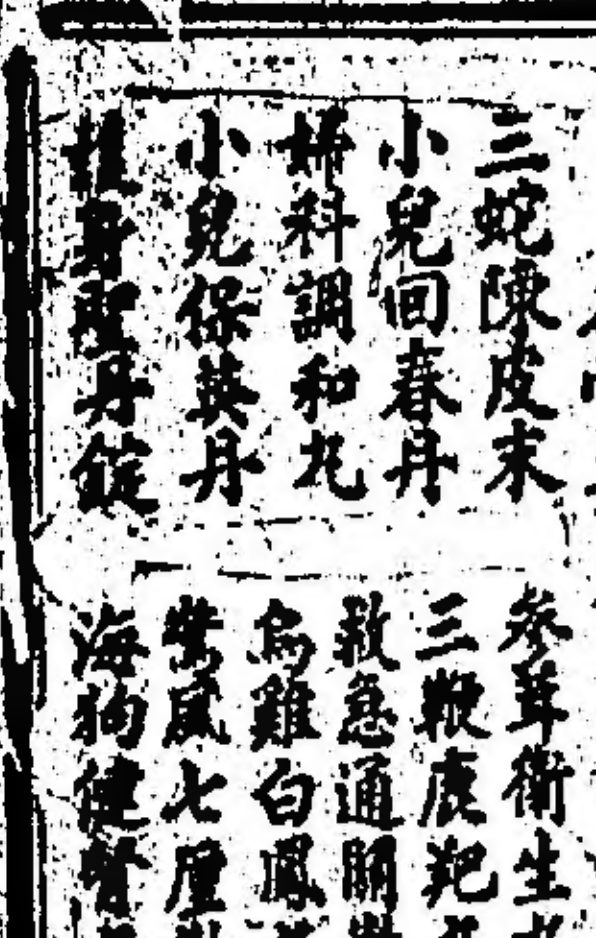 三蛇陳皮末
小兒回春丹
婦科調和丸
小兒保英丹
護身聖丹錠
參茸衛生
三鞭鹿
救急通關
烏雞白鳳
紫風七厘
海狗健腎